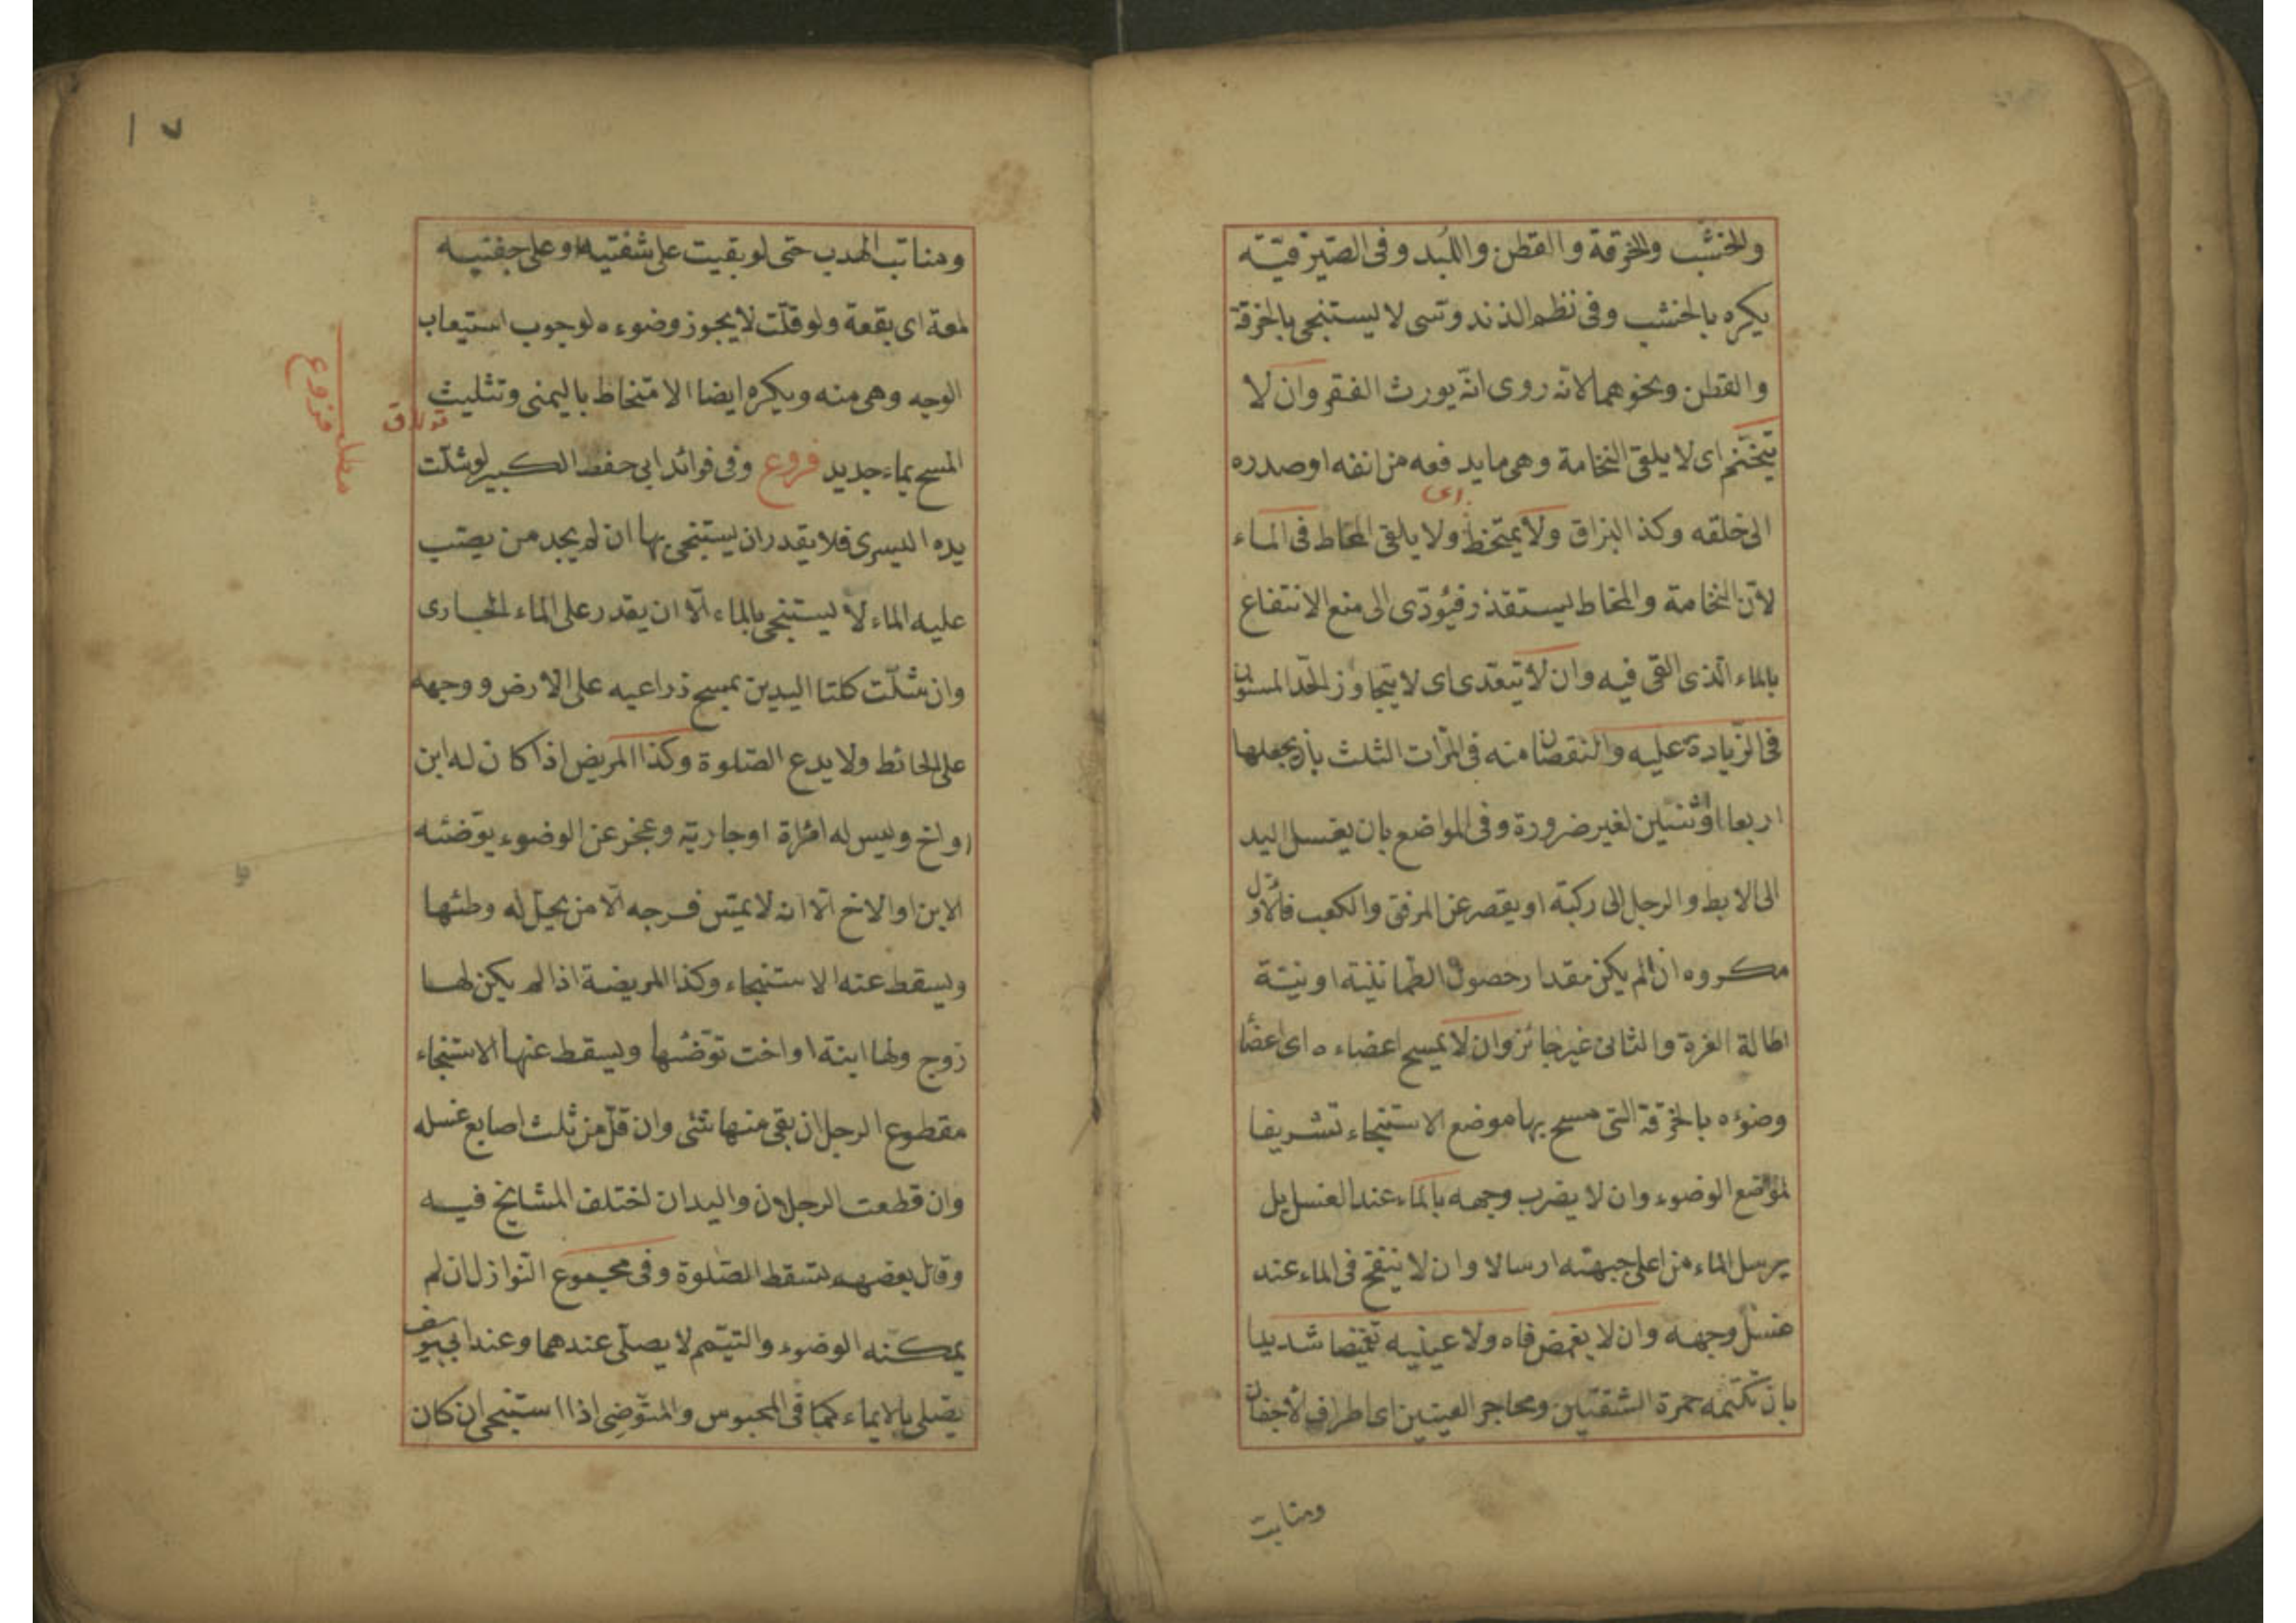 والخشب والخرقة والقطن واللبد وفى الصيرفية
يكره بالخشب وفى نظم الذندوتسى لا يستنجى بالخرقة
والقطن ونحوهما لانه روى انه يورث الفقر وان لا
يتخنم اى لا يلقى النخامة وهى ما يدفعه من انفه او صدره
الى خلقه وكذا البزاق ولا يمتخط اى ولا يلقى المخاط فى الماء
لان النخامة والمخاط يستقذر فيؤدى الى منع الانتفاع
بالماء الذى القى فيه وان لا يتعدى اى لا يتجاوز الحد المسنون
فى الزيادة عليه والنقصان منه فى المرات الثلث بان يجعلها
اربعا او ثنتين لغير ضرورة وفى المواضع بان يغسل اليد
الى الابط والرجل الى ركبته او يقصر عن المرفق والكعب فالاول
مكروه ان لم يكن مقدار حصول الطمانينة او نية
اطالة الغرة والثانى غير جائز وان لا يمسح اعضاءه اى اعضا
وضوءه بالخرقة التى مسح بها موضع الاستنجاء تشريفا
لمواضع الوضوء وان لا يضرب وجهه بالماء عند الغسل بل
يرسل الماء من اعلى جبهته ارسالا وان لا ينفخ فى الماء عند
غسل وجهه وان لا يغمض فاه ولا عينيه تغميضا شديدا
بان تكتمه حمرة الشفتين ومحاجر العينين اى اطراف الاجفان
ومنابت
١٧
ومنابت الهدب حتى لو بقيت على شفتيه او على جفنيه
لمعة اى بقعة ولو قلت لا يجوز وضوءه لوجوب استيعاب
الوجه وهى منه ويكره ايضا الامتخاط باليمنى وتثليث
المسح بماء جديد فروع وفى فوائد ابى حفص الكبير لو شلت
يده اليسرى فلا يقدر ان يستنجى بها ان لم يجد من يصب
عليه الماء لا يستنجى بالماء الا ان يقدر على الماء الجارى
وان شلت كلتا اليدين يمسح ذراعيه على الارض ووجهه
على الحائط ولا يدع الصلوة وكذا المريض اذا كان له ابن
او اخ وليس له امراة او جارية وعجز عن الوضوء يوضئه
الابن او الاخ الا انه لا يمس فرجه الا من يحل له وطئها
ويسقط عنه الاستنجاء وكذا المريضة اذا لم يكن لها
زوج ولها ابنة او اخت توضئها ويسقط عنها الاستنجاء
مقطوع الرجل ان بقى منها شئ وان قل من ثلث اصابع غسله
وان قطعت الرجلان واليدان اختلف المشايخ فيه
وقال بعضهم تسقط الصلوة وفى مجموع النوازل ان لم
يمكنه الوضوء والتيمم لا يصلى عندهما وعند ابى يوسف
يصلى بالايماء كما فى المحبوس والمتوضى اذا استنجى ان كان
مطلب فروع